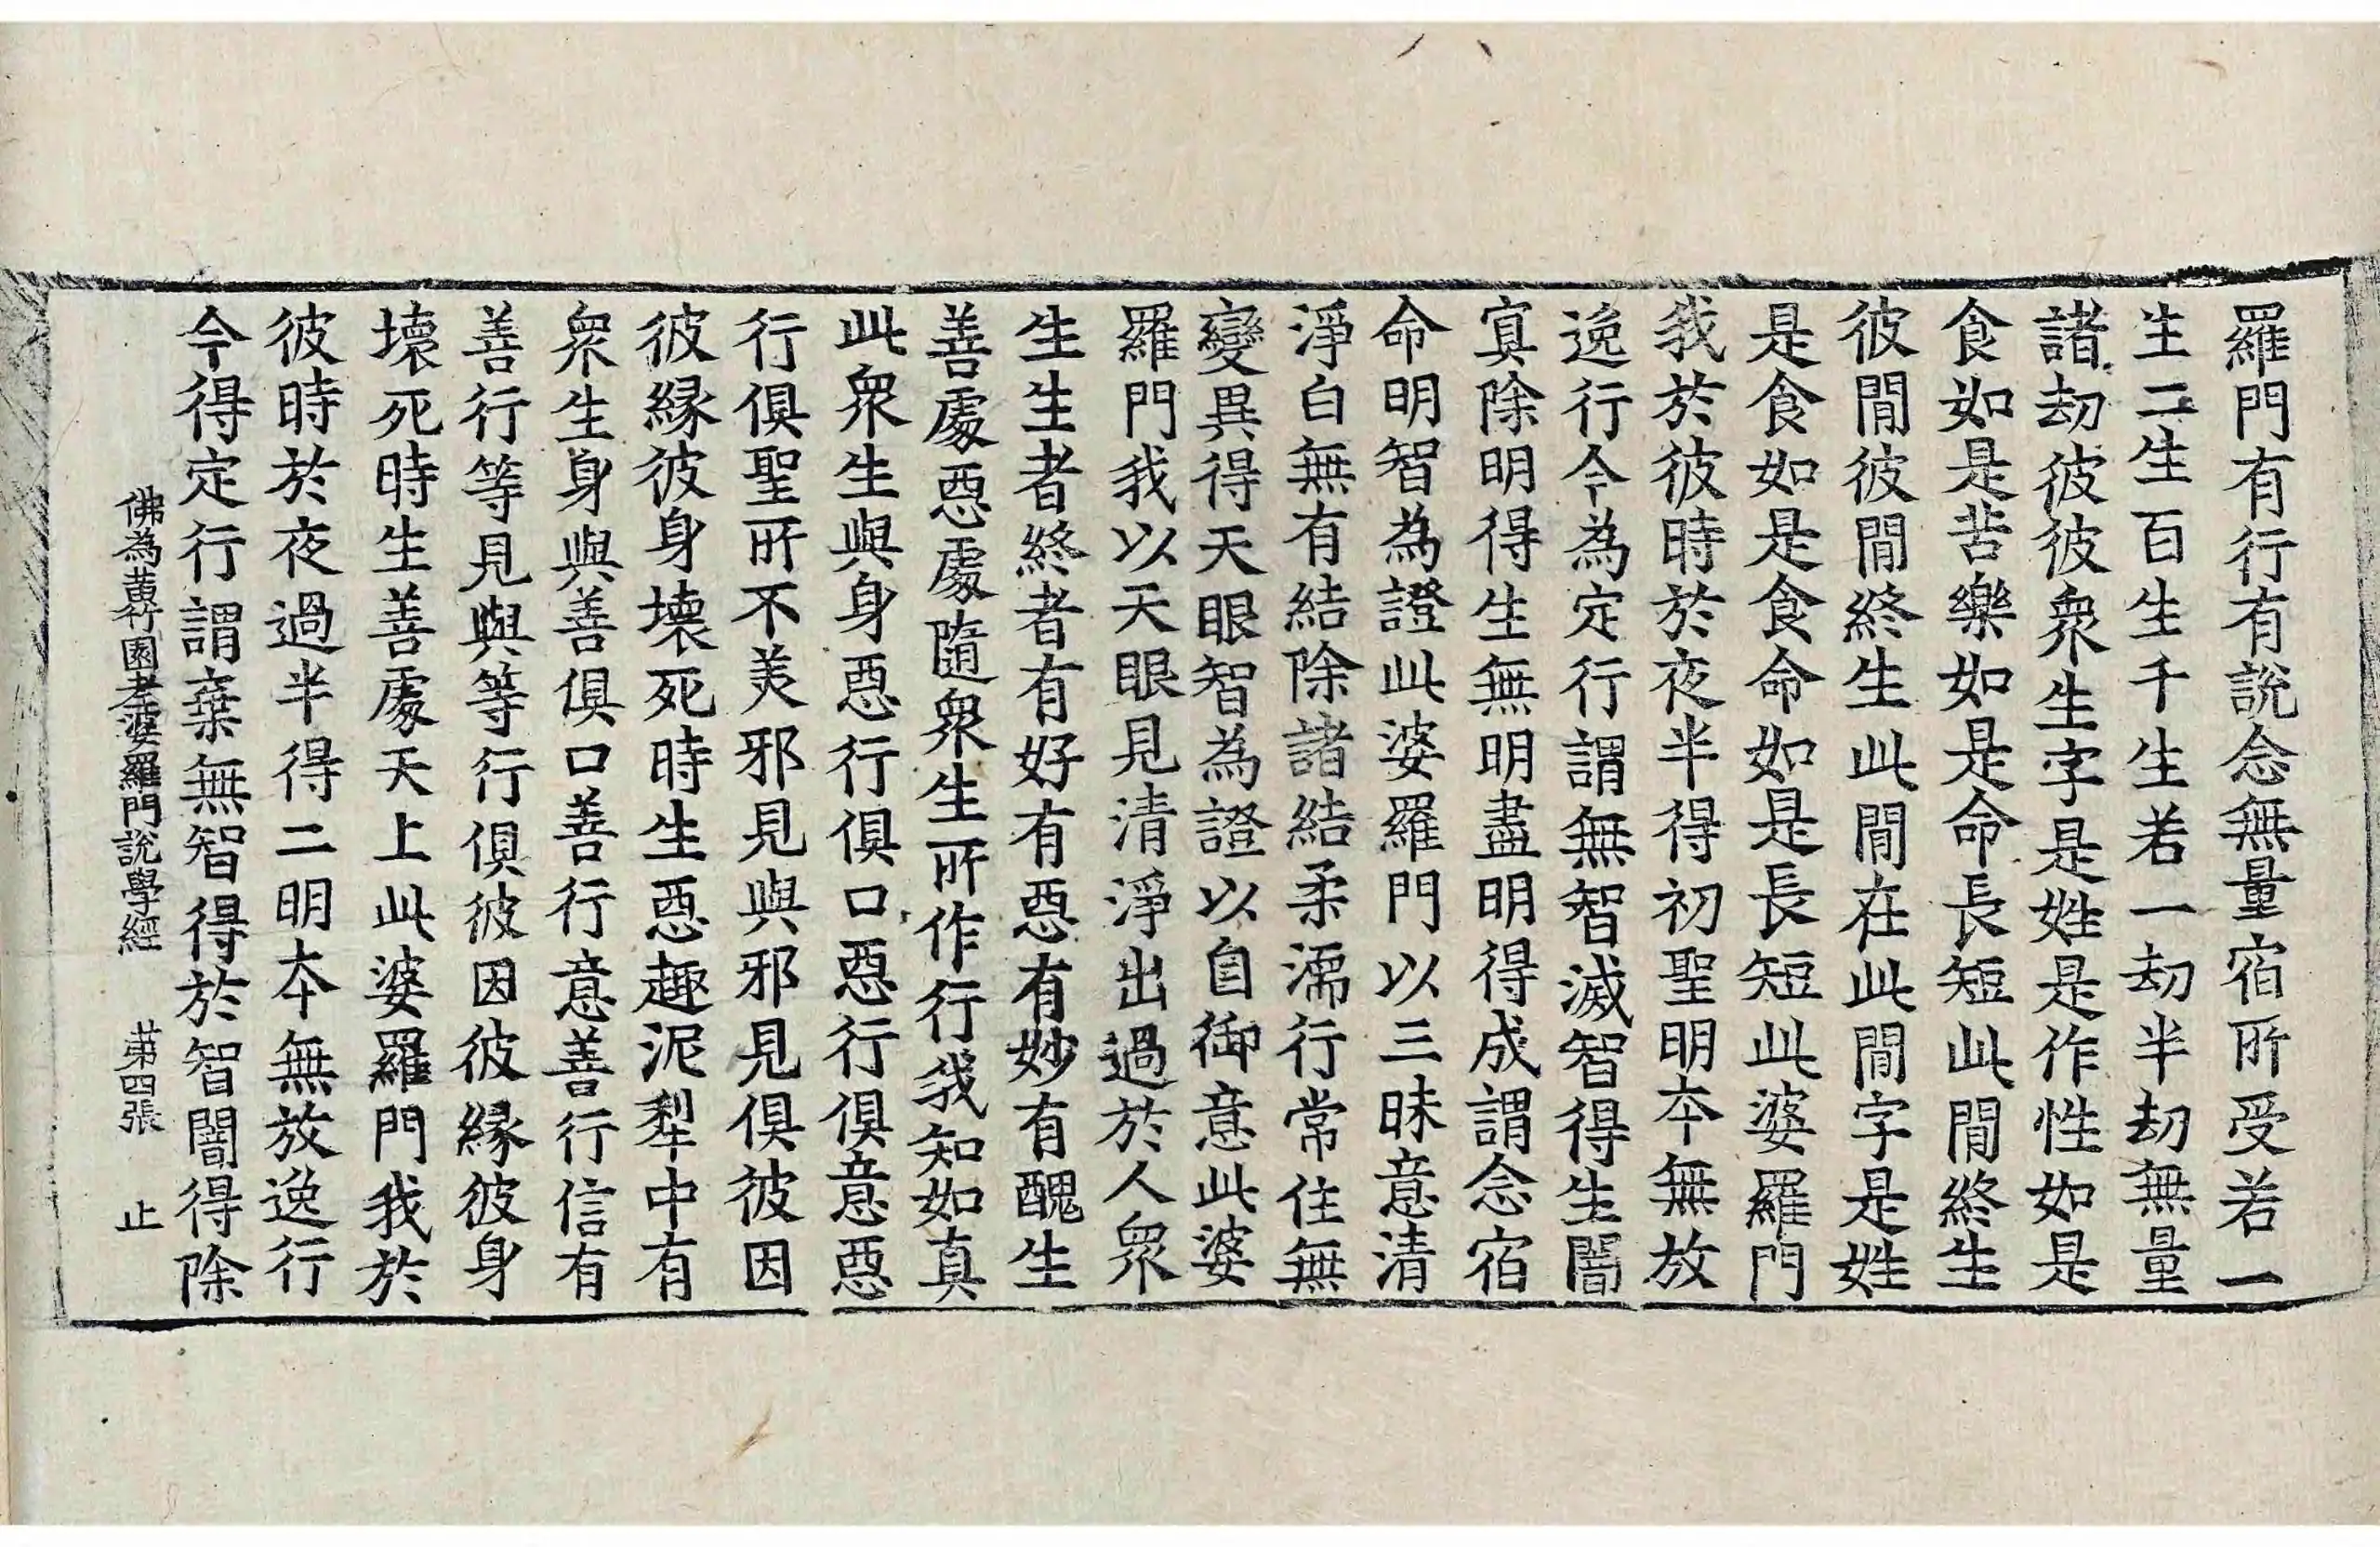 羅門有行有說念無量宿所受若一
生二生百生千生若一劫半劫無量
諸劫彼彼衆生字是姓是作性如是
食如是苦樂如是命長短此閒終生
彼閒彼閒終生此閒在此閒字是姓
是食如是食命如是長短此婆羅門
我於彼時於夜半得初聖明本無放
逸行今為定行謂無智滅智得生闇
冥除明得生無明盡明得成謂念宿
命明智為證此婆羅門以三昧意清
淨白無有結除諸結柔濡行常住無
變異得天眼智為證以自御意此婆
羅門我以天眼見清淨出過於人衆
生生者終者有好有惡有妙有醜生
善處惡處隨衆生所作行我知如真
此衆生與身惡行俱口惡行俱意惡
行俱聖所不羙邪見與邪見俱彼因
彼緣彼身壞死時生惡趣泥犁中有
衆生身與善俱口善行意善行信有
善行等見與等行俱彼因彼緣彼身
壞死時生善處天上此婆羅門我於
彼時於夜過半得二明本無放逸行
今得定行謂棄無智得於智闇得除
佛為黃竹園老婆羅門說學經 苐四張 止